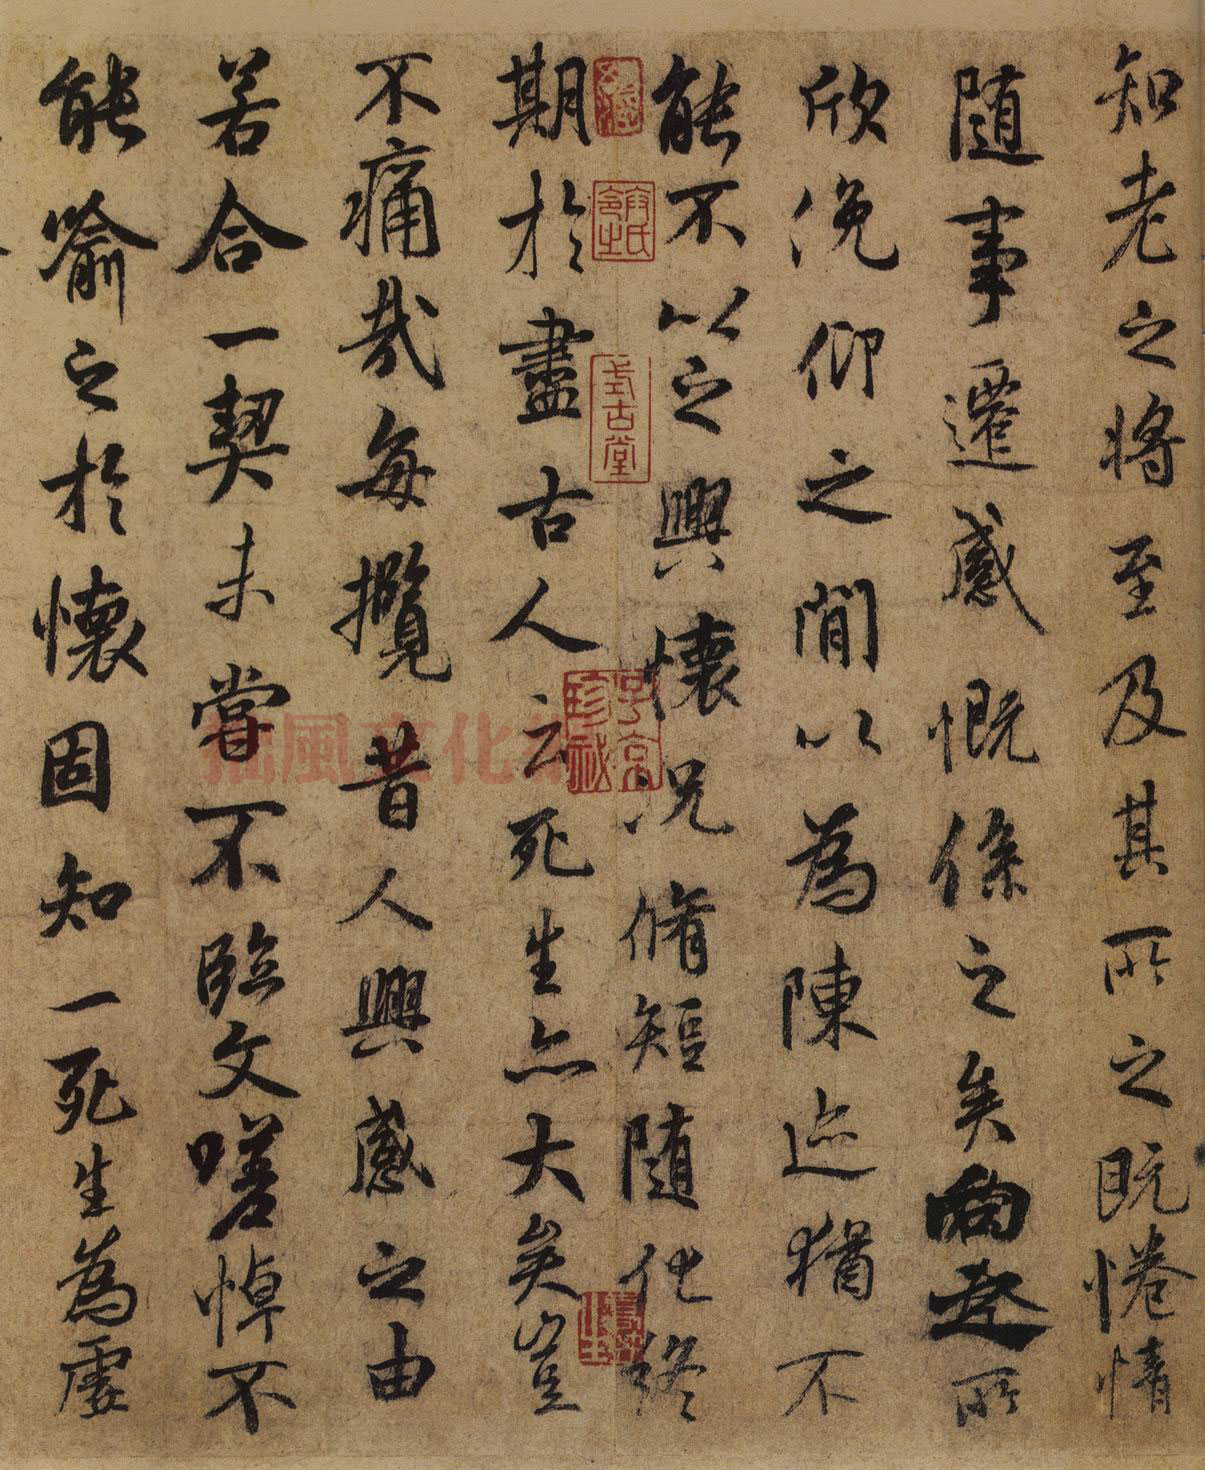 知老之将至及其所之既惓情
随事遷感慨係之矣向之所
欣俛仰之閒以為陳迹猶不
能不以之興懷況脩短随化終
期於盡古人云死生亦大矣豈
不痛哉每攬昔人興感之由
若合一契未嘗不臨文嗟悼不
能喻之於懷固知一死生為虛
式古堂